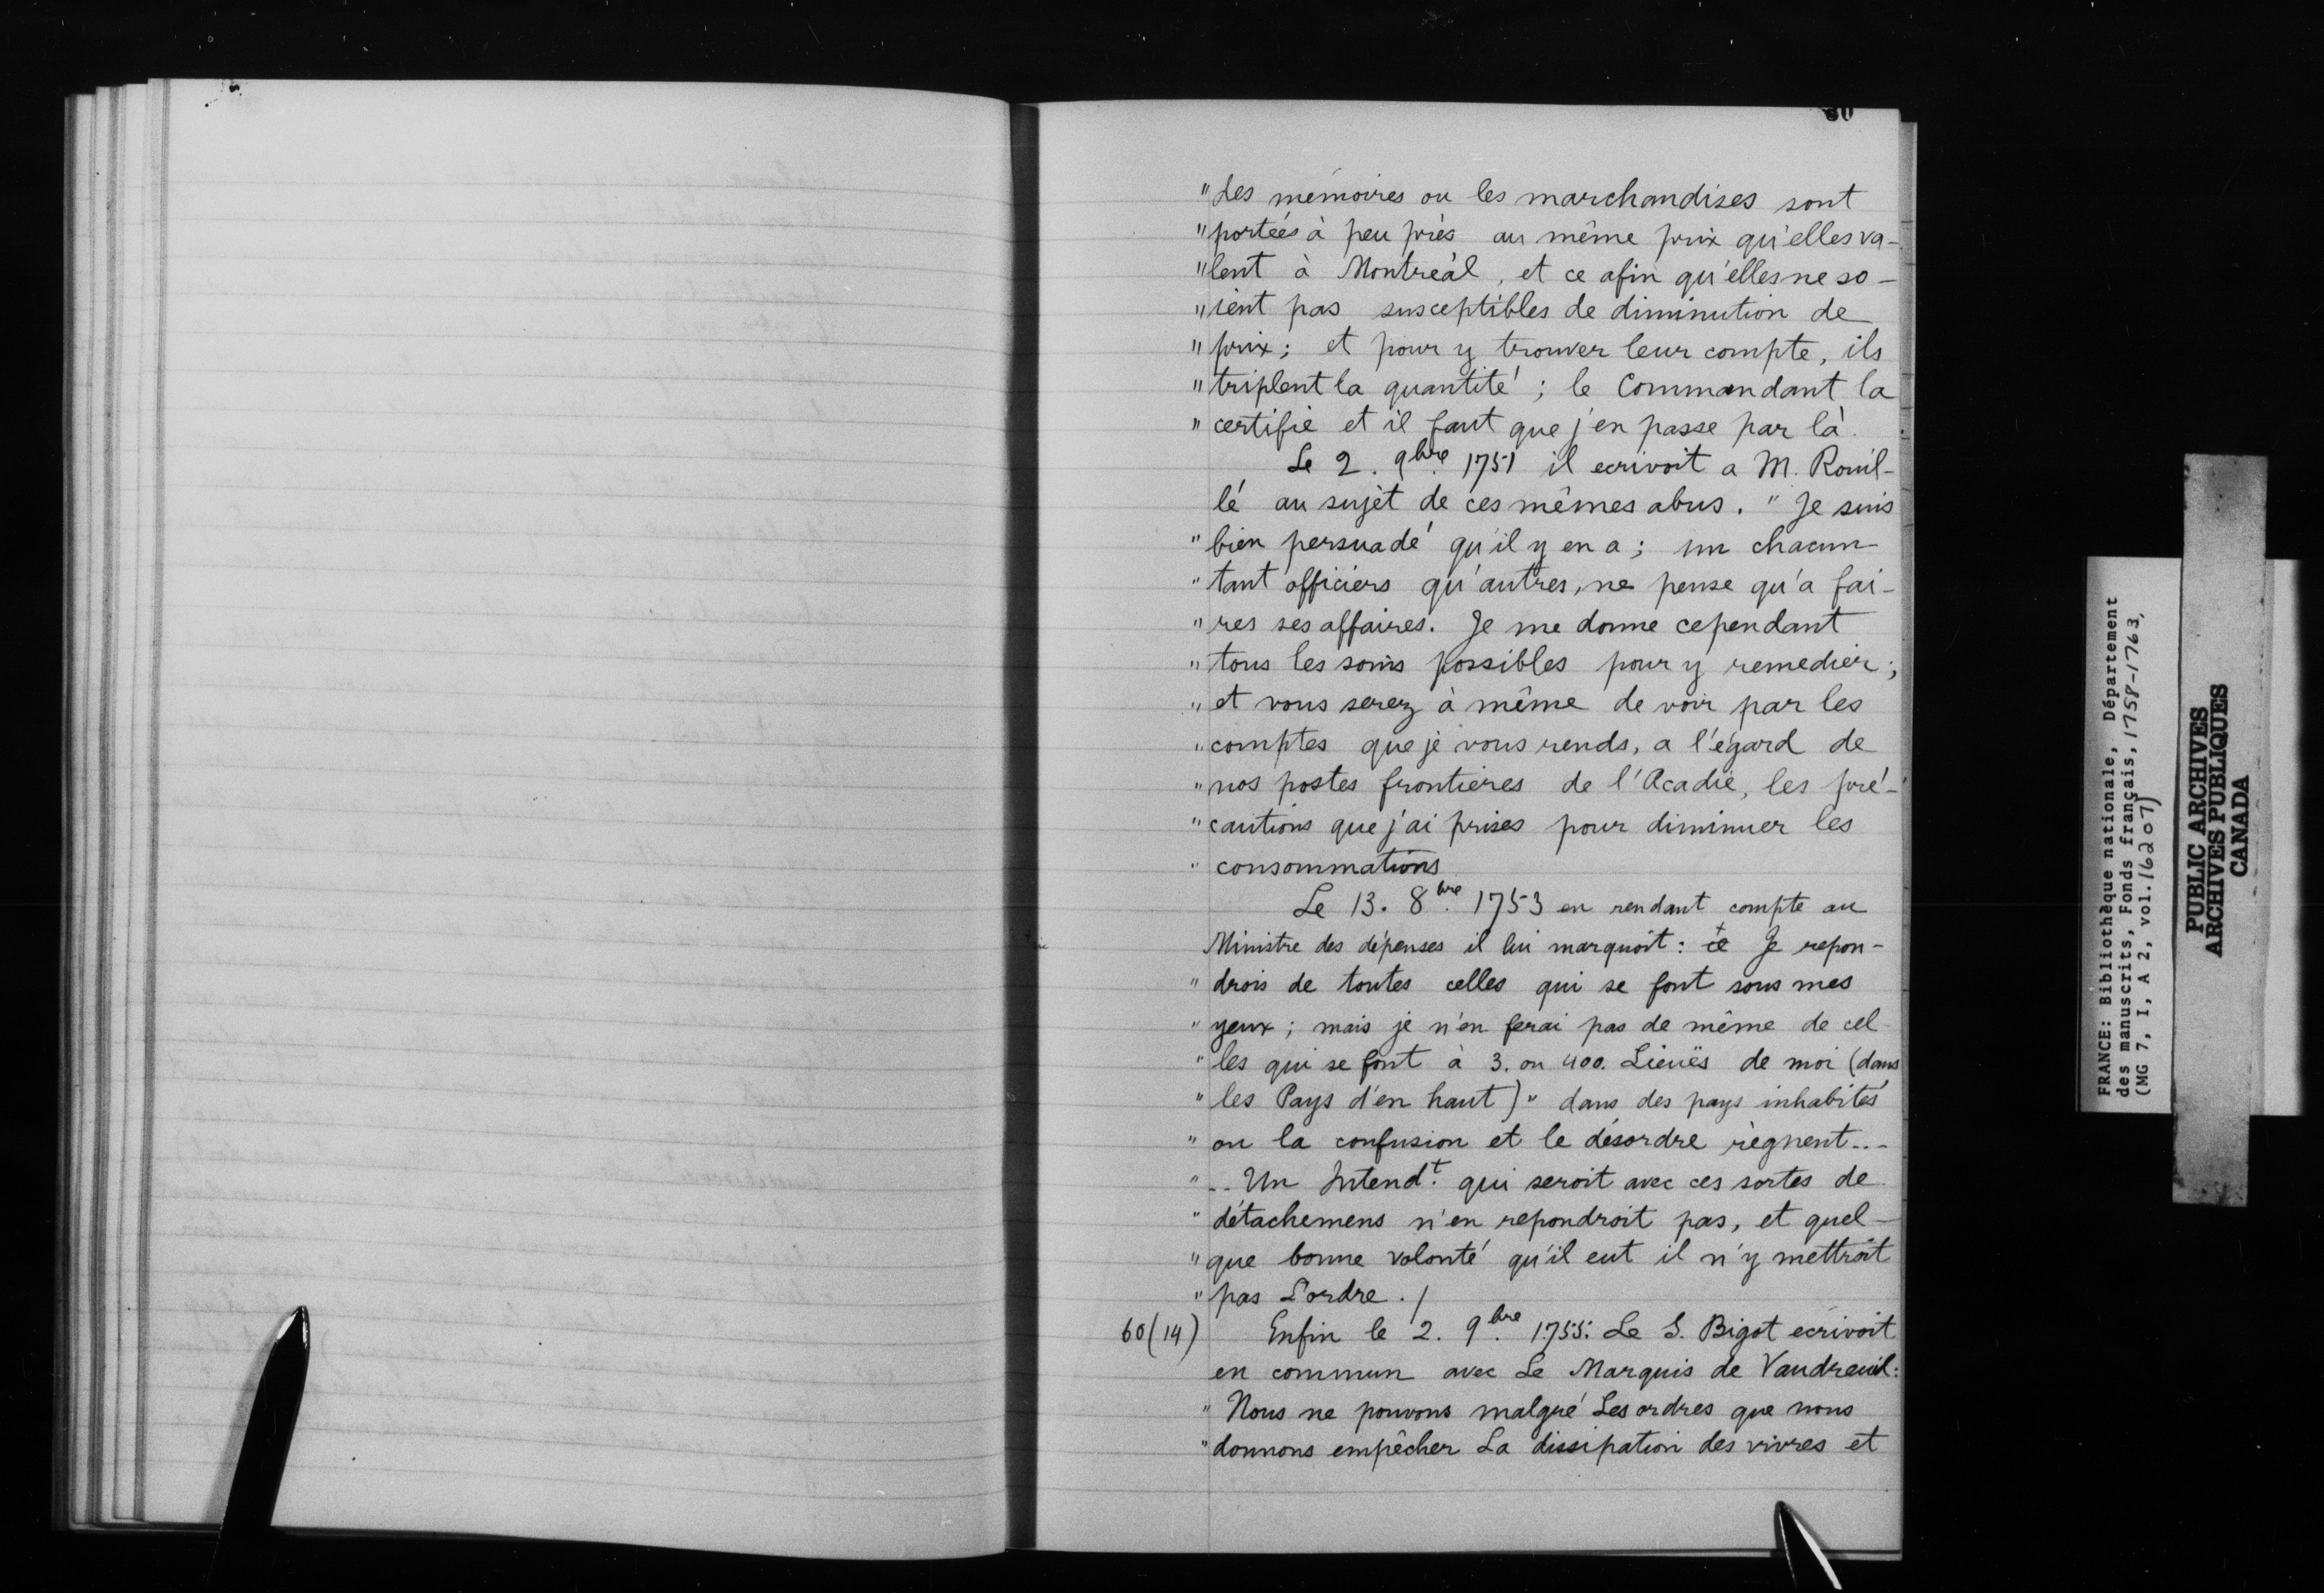 " des mémoires ou les marchandises sont
" portées à peu près au même prix qu'elles va-
" lent à Montréal, et ce afin qu'elles ne so-
" ient pas susceptibles de diminution de
" prix ; et pour y trouver leur compte, ils
" triplent la quantité ; le Commandant la
" certifie et il faut que j'en passe par là.
Le 2. 9bre 1751 il ecrivoit a M. Rouil-
lé au sujet de ces mêmes abus. " Je suis
" bien persuadé qu'il y en a ; un chacun
" tant officiers qu'autres, ne pense qu'a fai-
" res ses affaires. Je me donne cependant
" tous les soins possibles pour y remedier ;
" et vous serez à même de voir par les
" comptes que je vous rends, a l'égard de
" nos postes frontieres de l'Acadie, les pré-
" cautions que j'ai prises pour diminuer les
" consommations
Le 13. 8bre 1753 en rendant compte au
Ministre des dépenses il lui marquoit : Je repon-
" drois de toutes celles qui se font sous mes
" yeux ; mais je n'en ferai pas de même de cel-
" les qui se font à 3. ou 400. Lieuës de moi (dans
" les Pays d'en haut) " dans des pays inhabités
" ou la confusion et le désordre règnent...
" .. Un Intendt. qui seroit avec ces sortes de
" détachemens n'en repondroit pas, et quel-
" que bonne volonté qu'il eut il n'y mettroit
" pas L'ordre . /
60(14) Enfin le 2. 9bre 1755. Le S. Bigot ecrivoit
en commun avec Le Marquis de Vaudreuil :
" Nous ne pouvons malgré Les ordres que nous
" donnons empêcher La dissipation des vivres et
FRANCE: Bibliothèque nationale, Département
des manuscrits, Fonds français, 1758-1763,
(MG 7, I, A 2, vol. 16207)
PUBLIC ARCHIVES
ARCHIVES PUBLIQUES
CANADA